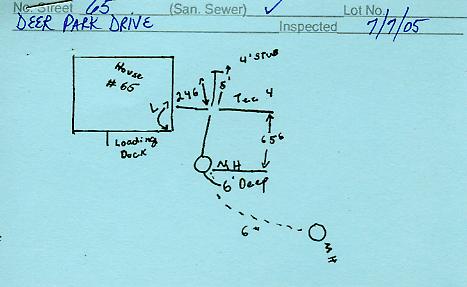 No. Street 65 (San. Sewer) ✓ Lot No.
DEER PARK DRIVE Inspected 7/7/05
4' STUB
House
# 65
246
8'
Tee 4
L
Loading
Dock
656
MH
6' Deep
6"